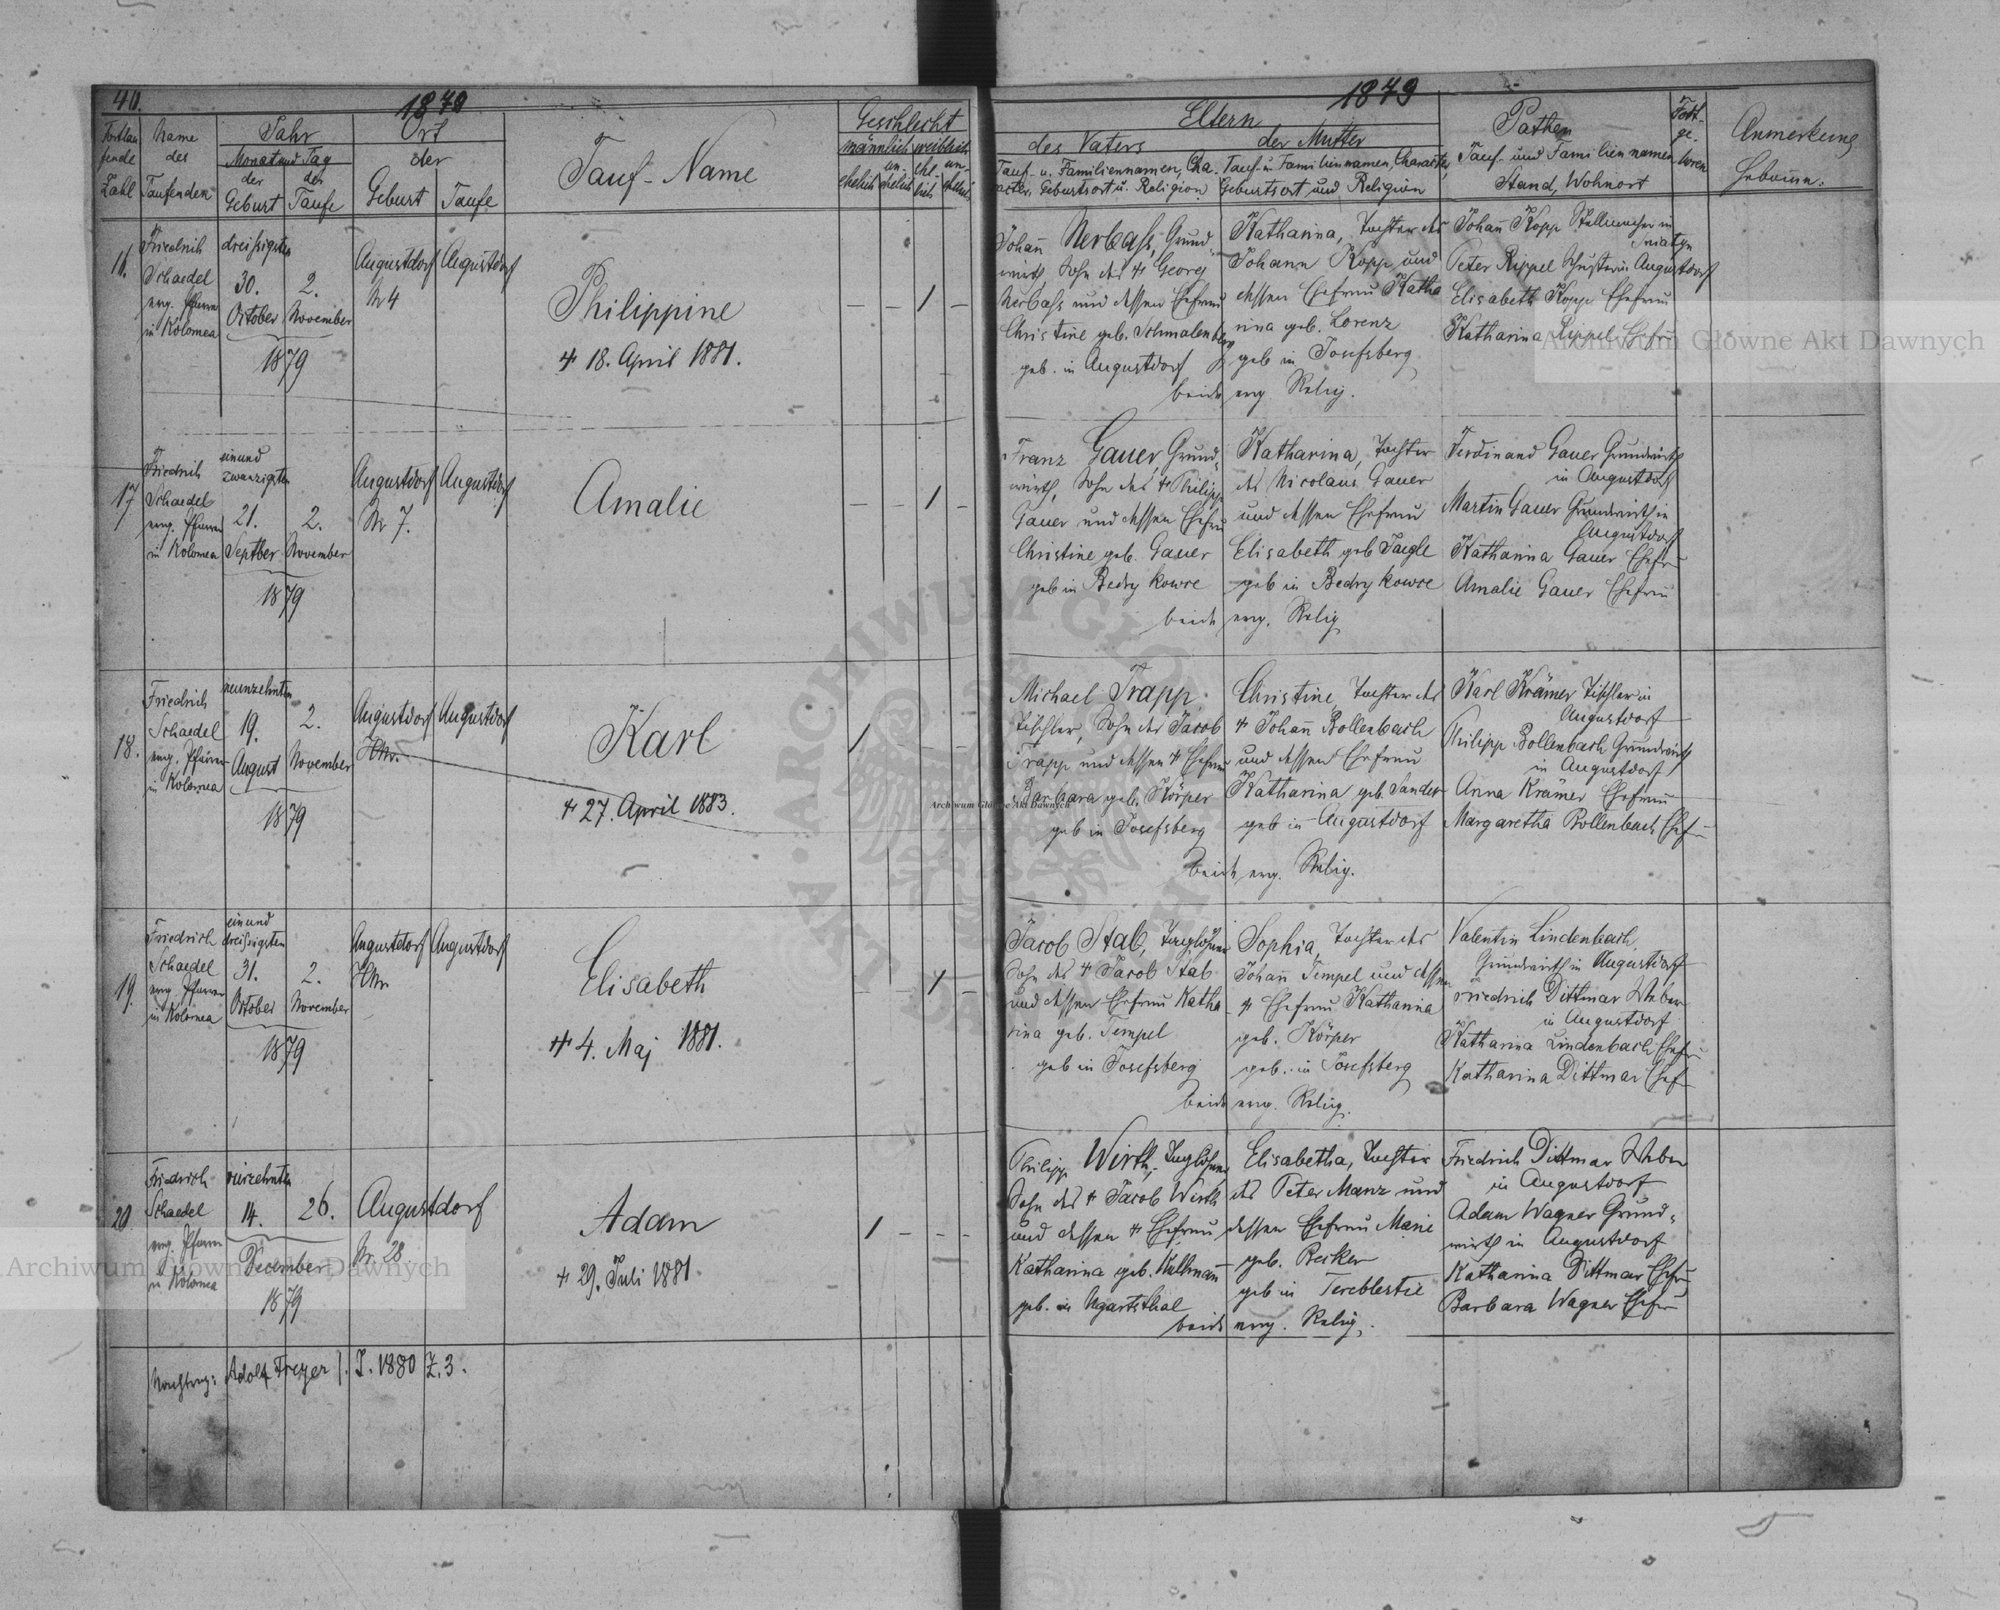 40.
1879
Fortlau
fende
Zahl
Name
des
Taufenden
Jahr
Monat und Tag
der
Geburt
der
Taufe
Ort
der
Geburt
Taufe
Tauf-Name
Geschlecht
männlich
weiblich
ehelich
un-
ehelich
ehe-
lich
un-
ehelich
16.
Friedrich
Schaedel
evg. Pfarrer
in Kolomea
dreißigsten
30.
October
2.
November
1879
Augustdorf
Nr 4
Augustdorf
Philippine
+ 18. April 1881.
— — 1 —
17
Friedrich
Schaedel
evg. Pfarrer
in Kolomea
einund
zwanzigsten
21.
Septber
2.
November
1879
Augustdorf
Nr 7.
Augustdorf
Amalie
— — 1 —
18.
Friedrich
Schaedel
evg. Pfarrer
in Kolomea
neunzehnten
19.
August
2.
November
1879
Augustdorf
Augustdorf
Karl
+ 27. April 1883.
1
19.
Friedrich
Schaedel
evg. Pfarrer
in Kolomea
einund
dreißigsten
31.
October
2.
November
1879
Augustdorf
Augustdorf
Elisabeth
+ 4. Maj 1881.
1 —
20
Friedrich
Schaedel
evg. Pfarrer
in Kolomea
vierzehnten
14.
26.
December
1879
Augustdorf
Nr. 28
Adam
+ 29. Juli 1881.
1 — — —
Nachtrag: Adolf Freyer J. 1880 Z. 3.
1879
Eltern
des Vaters
der Mutter
Tauf- u. Familiennamen, Cha-
racter, Geburtsort u. Religion
Tauf- u. Familiennamen, Character,
Geburtsort und Religion
Pathen
Tauf- und Familiennamen
Stand, Wohnort
Todt-
ge-
boren
Anmerkung
Hebamme.
Johañ Nerbaß, Grund-
wirth Sohn des + Georg
Nerbaß und dessen Ehefrau
Christine geb. Schmalenberg
geb. in Augustdorf
Katharina, Tochter des
Johann Kopp und
dessen Ehefrau Katha
rina geb. Lorenz
geb in Josefsberg
beide evg Relig.
Johañ Kopp Stellmacher in
Sniatyn
Peter Rippel Schuster in Augustdorf
Elisabeth Kopp Ehefrau
Katharina Rippel Ehefr
Franz Gauer, Grund-
wirth, Sohn des + Philipp
Gauer und dessen Ehefrau
Christine geb. Gauer
geb in Bedrykowce
Katharina, Tochter
des Nicolaus Gauer
und dessen Ehefrau
Elisabeth geb Jaegle
geb in Bedrykowce
beide evg. Relig
Ferdinand Gauer Grundwirth
in Augustdorf
Martin Gauer Grundwirth in
Augustdorf
Katharina Gauer Ehefr
Amalie Gauer Ehefrau
Michael Trapp,
Tischler, Sohn des Jacob
Trapp und dessen + Ehefrau
Barbara geb. Körper
geb in Josefsberg
Christine, Tochter des
+ Johañ Bollenbach
und dessen Ehefrau
Katharina geb. Sander
geb in Augustdorf
beide evg. Relig.
Karl Krämer Tischler in
Augustdorf
Philipp Bollenbach Grundwirth
in Augustdorf
Anna Krämer Ehefrau
Margaretha Bollenbach Ehef
Jacob Stab, Taglöhner
Sohn des + Jacob Stab
und dessen Ehefrau Katha
rina geb. Tempel
geb in Josefsberg
Sophia, Tochter des
Johañ Tempel und dessen
+ Ehefrau Katharina
geb. Körper
geb. in Josefsberg
beide evg. Relig.
Valentin Lindenbach
Grundwirth in Augustdorf
Friedrich Dittmar Weber
in Augustdorf
Katharina Lindenbach Ehefr
Katharina Dittmar Ehef
Philipp Wirth, Taglöhner
Sohn des + Jacob Wirth
und dessen + Ehefrau
Katharina geb. Kullmañ
geb. in Ugartsthal
Elisabetha, Tochter
des Peter Manz und
dessen Ehefrau Marie
geb. Becker
geb in Tereblestie
beide evg. Relig.
Friedrich Dittmar Weber
in Augustdorf
Adam Wagner Grund-
wirth in Augustdorf
Katharina Dittmar Ehefr
Barbara Wagner Ehefr
Archiwum Główne Akt Dawnych
Archiwum Główne Akt Dawnych
Archiwum Główne Akt Dawnych